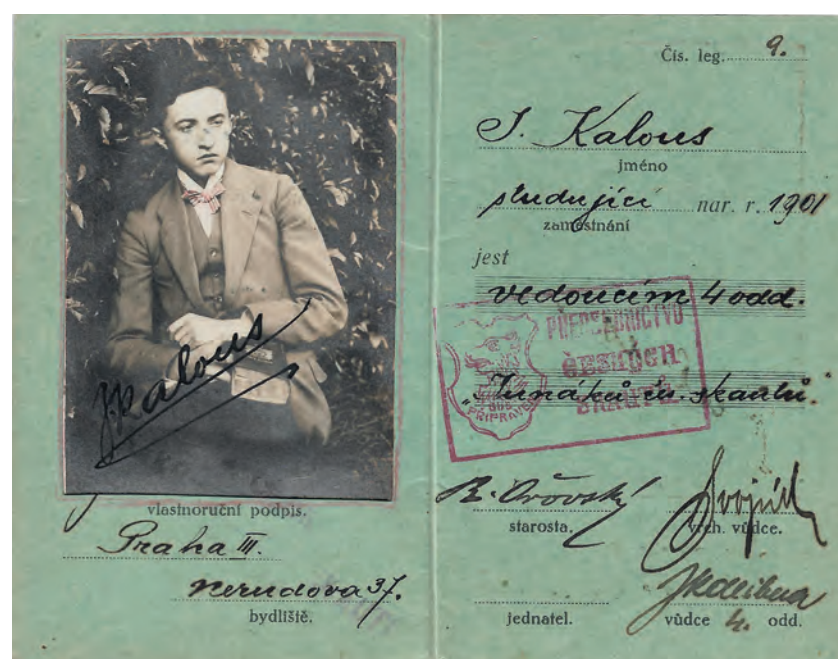 J. Kalous
vlastnoruční podpis.
Praha III.
Nerudova 37.
bydliště.
Čís. leg. 9.
J. Kalous
jméno
studující nar. r. 1901
zaměstnání
jest
vedoucím 4 odd.
PŘEDSEDNICTVO
ČESKÝCH
SKAUTŮ
BUĎ
PŘIPRAVEN
"Junáků čs. skautů."
starosta. vrch. vůdce.
jednatel. vůdce 4. odd.